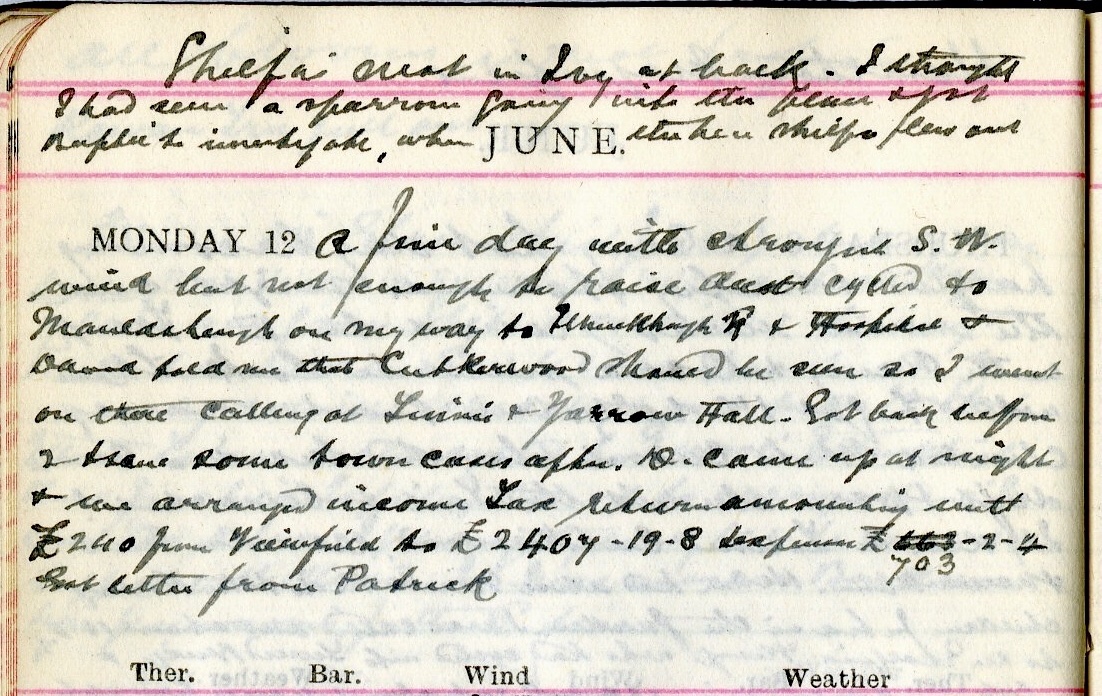 Shelfas nest in Ivy at back. I thought
I had seen a sparrow going into the place & got
to investigate, when the hen shelfa flew out
JUNE.
MONDAY 12 A fine day with strongish S. W.
wind but not enough to raise dust cycled to
on my way to & Hospital &
David told me that should be seen so I went
on there calling at & Yarrow Hall. Got back before
2 & saw some town cases after. D. came up at night
& we arranged income Tax return amounting with
£240 from Viewfield to £2407-19-8 & expenses £ 663-2-4
703
Got letter from Patrick
Ther. Bar. Wind Weather